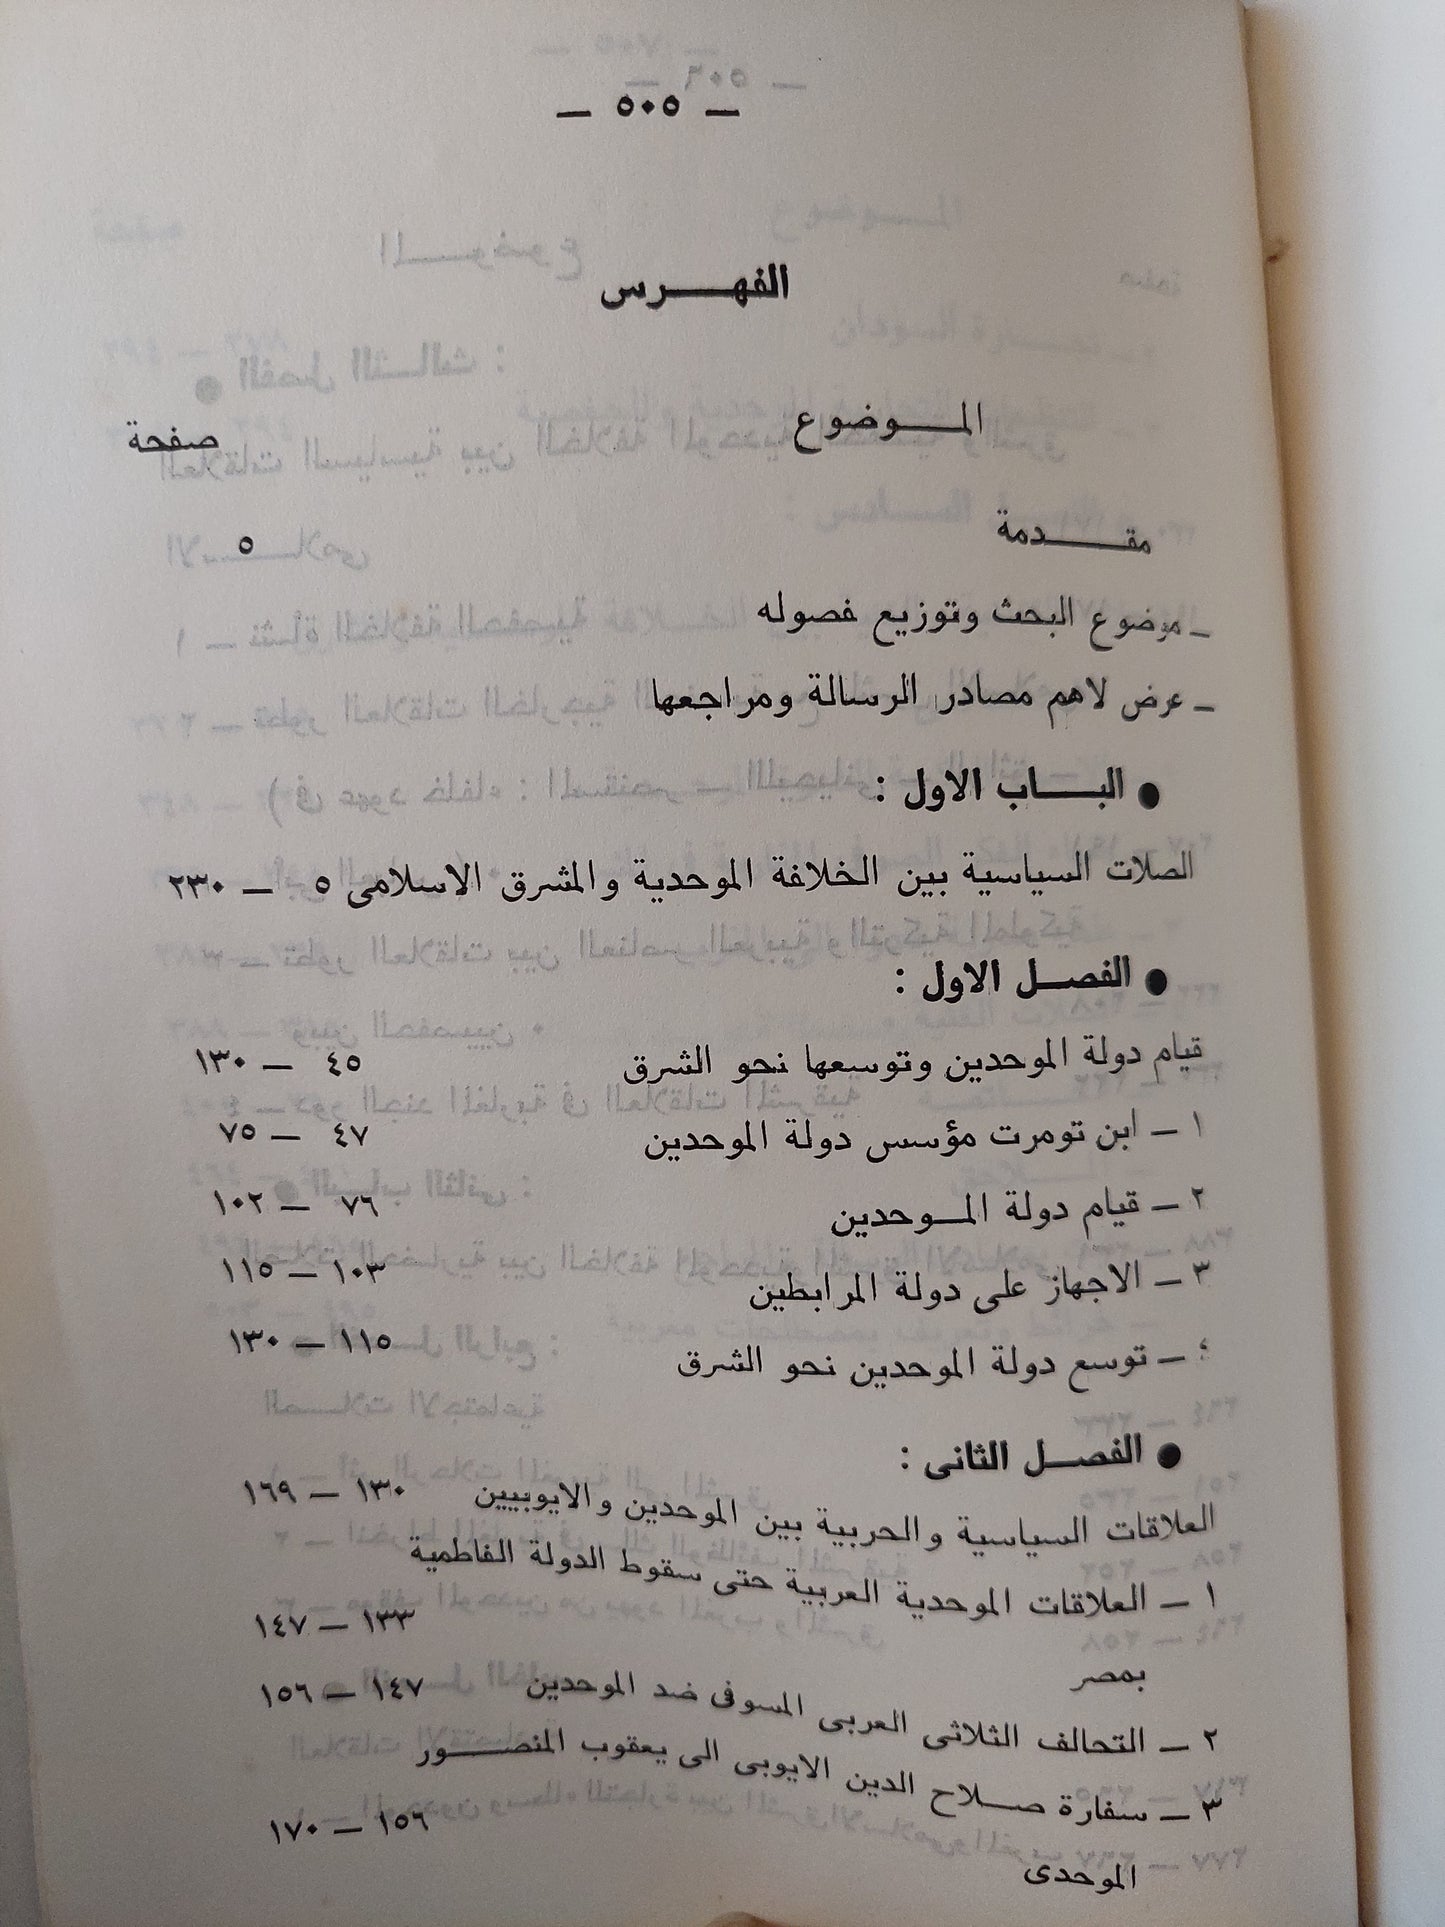 — ٥٠٥ —
الفهرس
الموضوع صفحة
مقدمة ٥
ـ موضوع البحث وتوزيع فصوله
ـ عرض لاهم مصادر الرسالة ومراجعها
● الباب الاول :
الصلات السياسية بين الخلافة الموحدية والمشرق الاسلامى ٥ — ٢٣٠
● الفصل الاول :
قيام دولة الموحدين وتوسعها نحو الشرق ٤٥ — ١٣٠
١ — ابن تومرت مؤسس دولة الموحدين ٤٧ — ٧٥
٢ — قيام دولة الموحدين ٧٦ — ١٠٢
٣ — الاجهاز على دولة المرابطين ١٠٣ — ١١٥
٤ — توسع دولة الموحدين نحو الشرق ١١٥ — ١٣٠
● الفصل الثانى :
العلاقات السياسية والحربية بين الموحدين والايوبيين ١٣٠ — ١٦٩
١ — العلاقات الموحدية العربية حتى سقوط الدولة الفاطمية
بمصر ١٣٣ — ١٤٧
٢ — التحالف الثلاثى العربى المسوفى ضد الموحدين ١٤٧ — ١٥٦
٣ — سفارة صلاح الدين الايوبى الى يعقوب المنصور
الموحدى ١٥٦ — ١٧٠